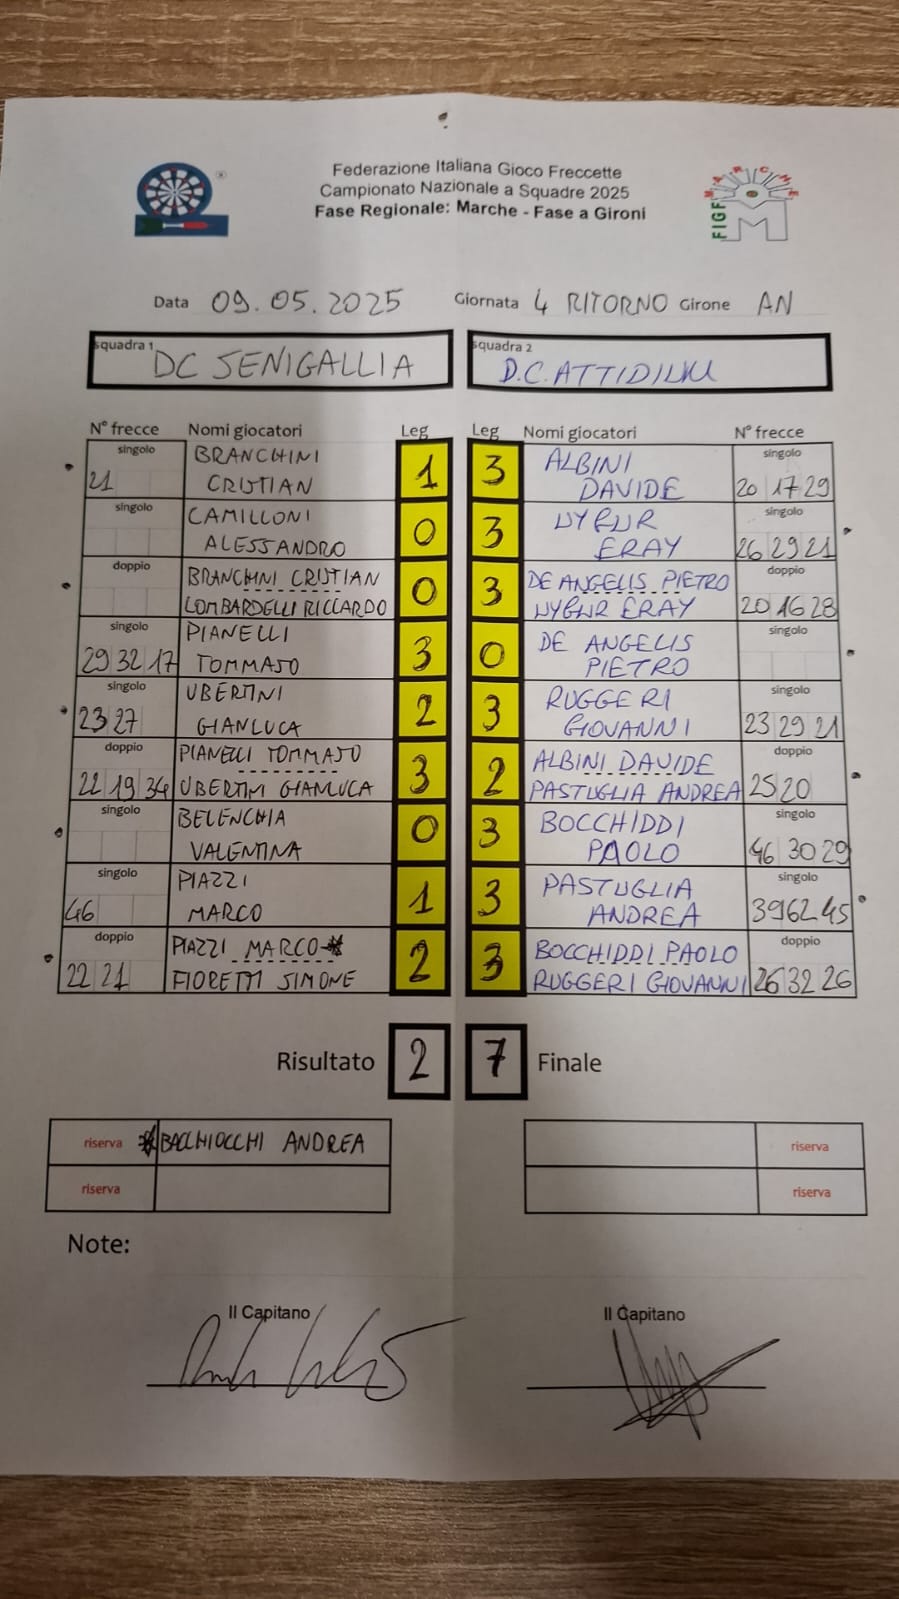 Federazione Italiana Gioco Freccette
Campionato Nazionale a Squadre 2025
Fase Regionale: Marche - Fase a Gironi
MARCHE
FIGF
M
Data 09.05.2025 Giornata 4 RITORNO Girone AN
squadra 1 DC SENIGALLIA squadra 2 D.C. ATTIDILIU
N° frecce Nomi giocatori Leg Leg Nomi giocatori N° frecce
singolo BRANCHINI 1 3 ALBINI singolo
21 CRISTIAN DAVIDE 20 17 29
singolo CAMILLONI 0 3 UYGUR singolo
ALESSANDRO ERAY 26 29 21
doppio BRANCHINI CRISTIAN 0 3 DE ANGELIS PIETRO doppio
LOMBARDELLI RICCARDO UYGUR ERAY 20 16 28
singolo PIANELLI 3 0 DE ANGELIS singolo
29 32 17 TOMMASO PIETRO
singolo UBERTINI 2 3 RUGGERI singolo
23 27 GIANLUCA GIOVANNI 23 29 21
doppio PIANELLI TOMMASO 3 2 ALBINI DAVIDE doppio
22 19 34 UBERTINI GIANLUCA PASTUGLIA ANDREA 25 20
singolo BELENCHIA 0 3 BOCCHIDDI singolo
VALENTINA PAOLO 46 30 29
singolo PIAZZI 1 3 PASTUGLIA singolo
46 MARCO ANDREA 39 62 45
doppio PIAZZI MARCO * 2 3 BOCCHIDDI PAOLO doppio
22 21 FIORETTI SIMONE RUGGERI GIOVANNI 26 32 26
Risultato 2 7 Finale
riserva * BACCHIOCCHI ANDREA riserva
riserva riserva
Note:
Il Capitano Il Capitano